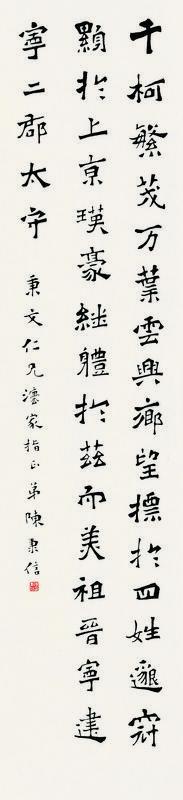 千柯繁茂万葉雲興鄉望標於四姓邈冠
顯於上京瑛豪継體於茲而美祖晉寧建
寧二郡太守
秉文仁兄灋家指正弟陳信